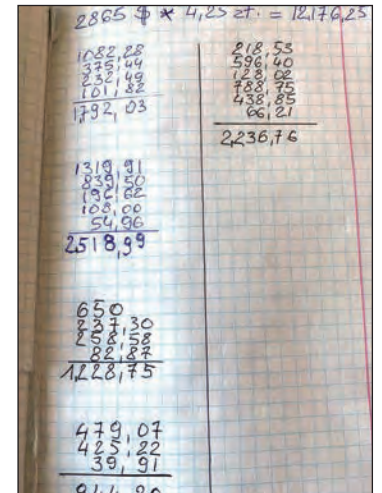 2865 $ * 4,25 zł. = 12176,25
1082,28
375,44
232,49
101,82
1,792,03
1319,91
839,50
196,62
108,00
54,96
2518,99
650
237,30
258,58
82,87
1,228,75
479,07
425,22
39,91
944,20
218,53
596,40
128,02
788,75
438,85
66,21
2,236,76